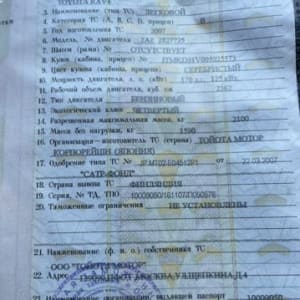 TOYOTA RAV4
3. Наименование (тип ТС) ЛЕГКОВОЙ
4. Категория ТС (А, В, С, D, прицеп) В
5. Год изготовления ТС 2007
6. Модель, № двигателя 2AZ
7. Шасси (рама) № ОТСУТСТВУЕТ
8. Кузов (кабина, прицеп) №
9. Цвет кузова (кабины, прицепа) СЕРЕБРИСТЫЙ
10. Мощность двигателя, л. с. (кВт)
11. Рабочий объем двигателя, куб. см 2362
12. Тип двигателя БЕНЗИНОВЫЙ
13. Экологический класс ЧЕТВЕРТЫЙ
14. Разрешенная максимальная масса, кг 2100
15. Масса без нагрузки, кг 1590
16. Организация - изготовитель ТС (страна) ТОЙОТА МОТОР
КОРПОРЕЙШН (ЯПОНИЯ)
17. Одобрение типа ТС № от 22.03.2007
"САТР-ФОНД"
18. Страна вывоза ТС ФИНЛЯНДИЯ
19. Серия, № ТД, ТПО
20. Таможенные ограничения НЕ УСТАНОВЛЕНЫ
21. Наименование (ф. и. о.) собственника ТС
ООО "ТОЙОТА МОТОР"
22. Адрес МОСКВА УЛ.ЩЕПКИНА Д.4
23. Наименование организации, выдавшей паспорт